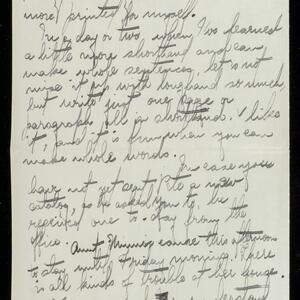 more) printed for myself.
In a day or two, when I've learned
a little more shorthand and can
make whole sentences, let's not
mix it up with longhand so much,
but write just one page or
paragraph all in shorthand. I like
it, and it is fun when you can
make whole words.
In case you
have not yet sent to a
catalog, as he asked you to, he
received one to-day from the
office. Aunt Minnie came this afternoon
to stay until Friday morning. There
is all kinds of trouble at her house.